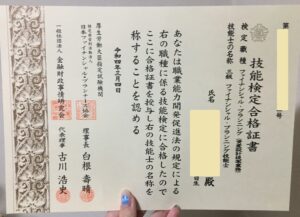 第
技能検定合格証書
検定職種 ファイナンシャル・プランニング
技能士の名称 三級 ファイナンシャル・プランニング技能士
氏名
殿
日生
あなたは職業能力開発促進法の規定による
右の職種に係る技能検定に合格したので
ここに合格証書を授与し右の技能士の名称を
称することを認める
令和四年三月四日
厚生労働大臣指定試験機関
理事長 白根壽晴
一般社団法人 金融財政事情研究会
代表理事 古川浩史